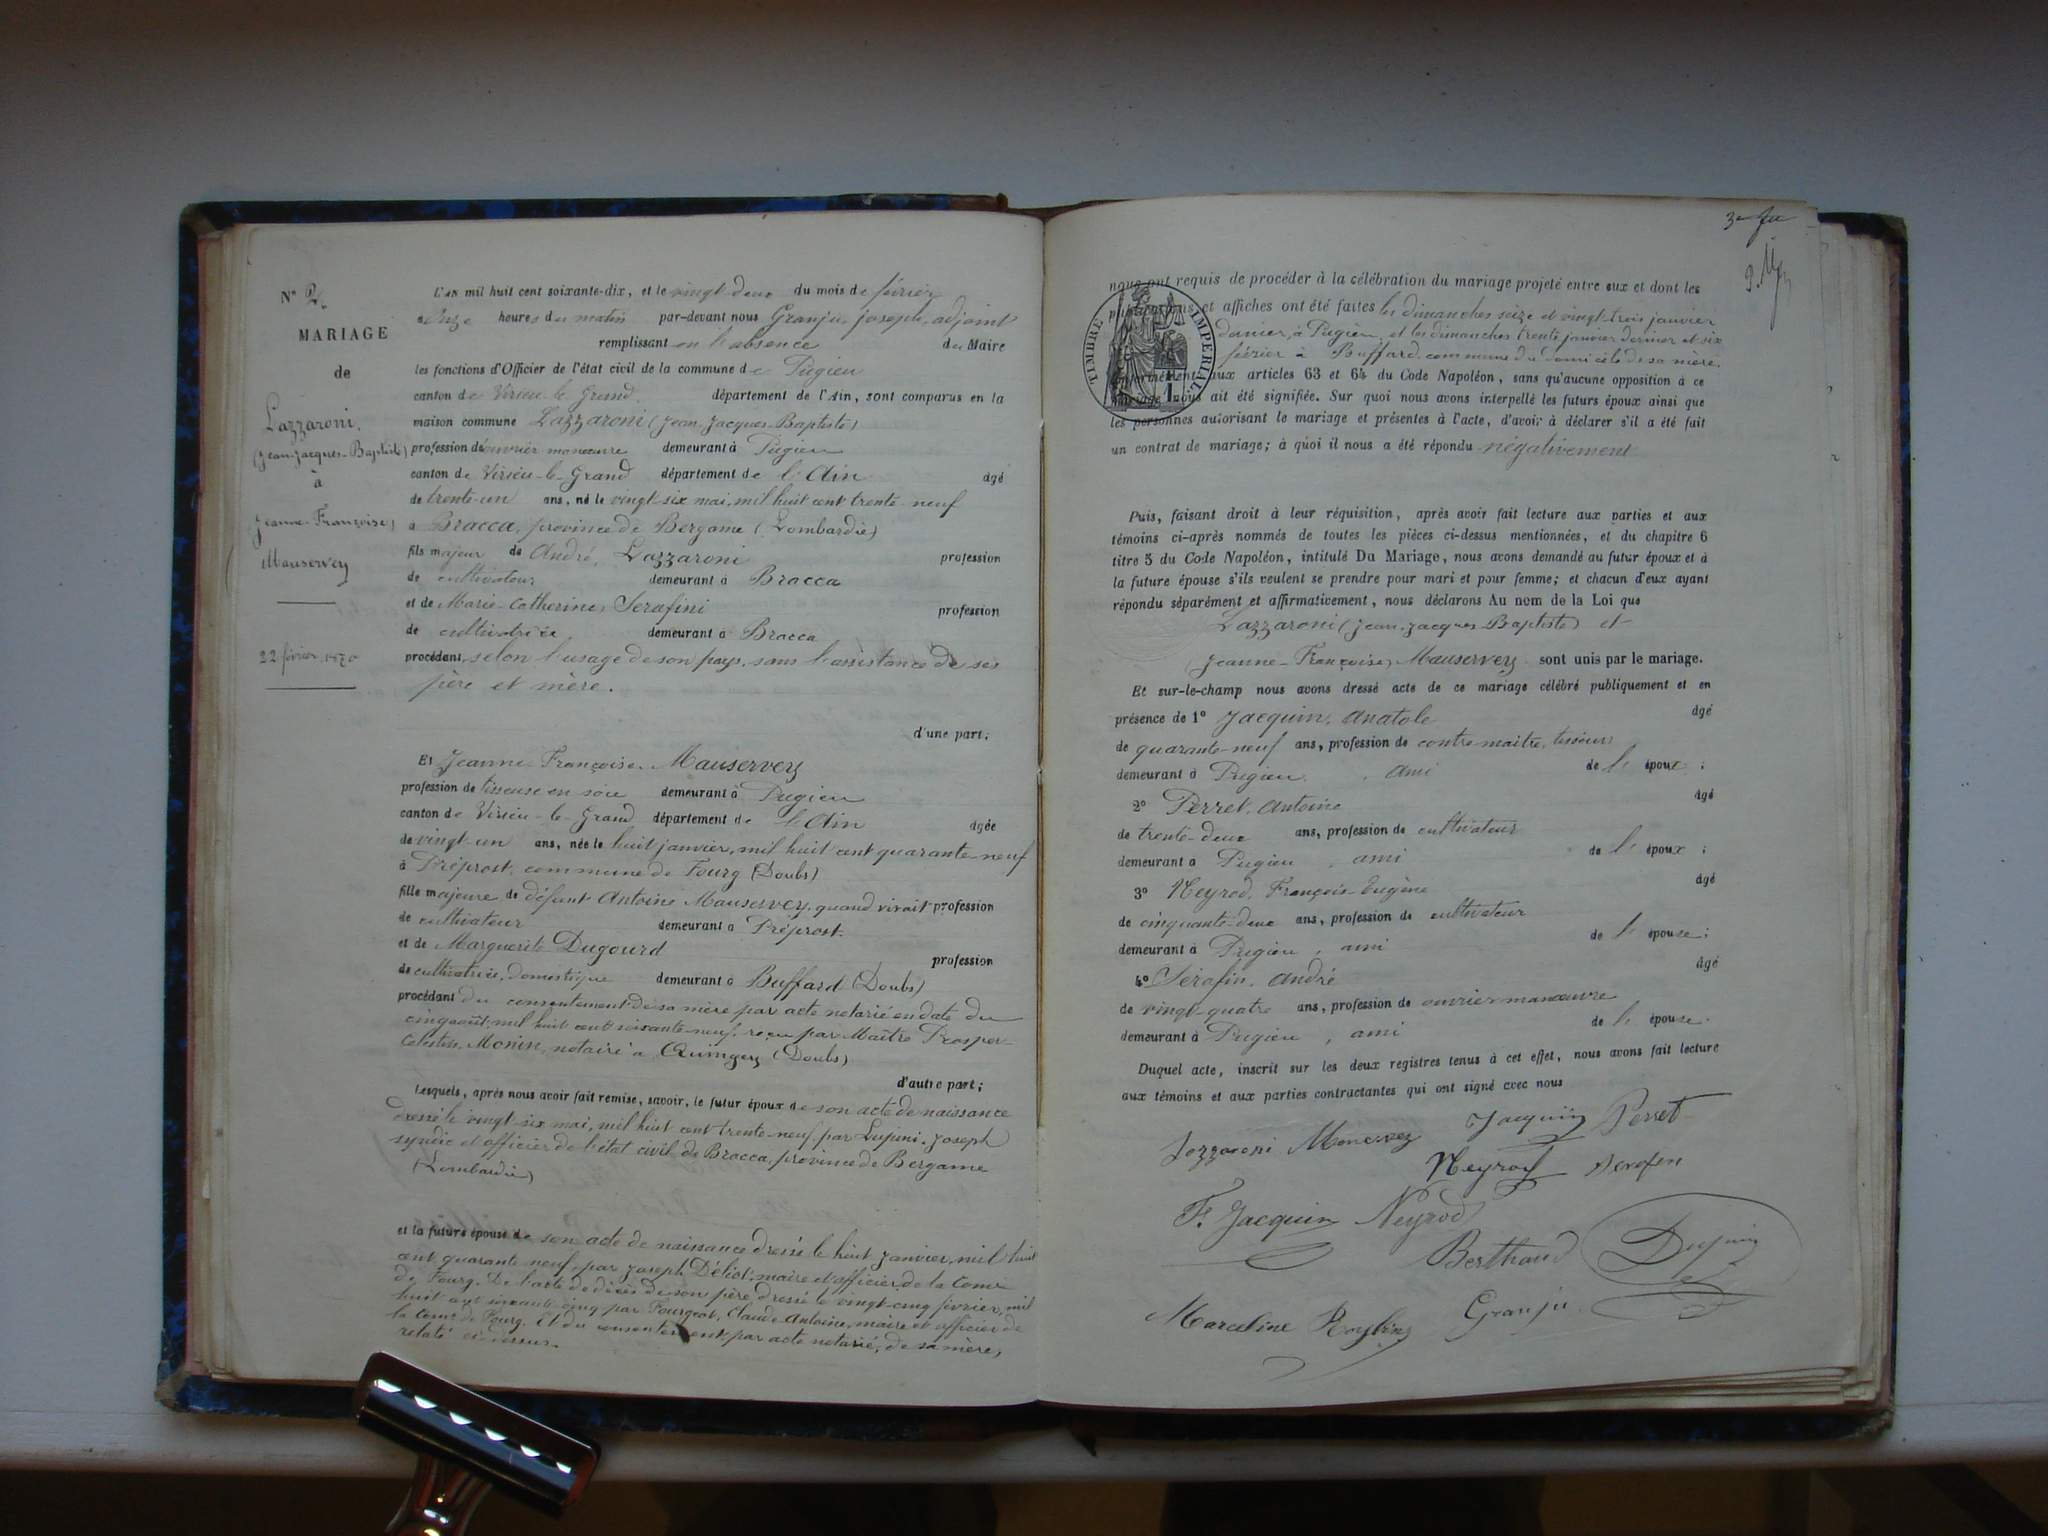 N° 2.
MARIAGE
de
Lazzaroni,
(Jean-Jacques-Baptiste)
à
Jeanne-Françoise,
Mauservey
22 février 1870
L'an mil huit cent soixante-dix, et le vingt-deux du mois de février
à onze heures du matin par-devant nous Granju, joseph, adjoint
remplissant en l'absence du Maire
les fonctions d'Officier de l'état civil de la commune de Pugieu
canton de Virieu-le-Grand. département de l'Ain, sont comparus en la
maison commune Lazzaroni (Jean-Jacques-Baptiste)
profession d'ouvrier manœuvre demeurant à Pugieu
canton de Virieu-le-Grand département de l'Ain âgé
de trente-un ans, né le vingt-six mai, mil huit cent trente-neuf
à Bracca, province de Bergame (Lombardie)
fils majeur de André, Lazzaroni profession
de cultivateur demeurant à Bracca
et de Marie-Catherine, Serafini profession
de cultivatrice, demeurant à Bracca
procédant, selon l'usage de son pays, sans l'assistance de ses
père et mère.
d'une part;
Et Jeanne-Françoise, Mauservey
profession de tisseuse en soie demeurant à Pugieu
canton de Virieu-le-Grand département de l'Ain âgée
de vingt-un ans, née le huit janvier, mil huit cent quarante-neuf
à Préprost, commune de Fourg (Doubs)
fille majeure de défunt Antoine Mauservey, quand vivait profession
de cultivateur demeurant à Préprost.
et de Marguerite Dugourd profession
de cultivatrice, domestique demeurant à Buffard (Doubs)
procédant du consentement de sa mère par acte notarié en date du
cinq août, mil huit cent soixante-neuf, reçu par Maître Prosper-
Célestin, Monin, notaire à Quingey (Doubs)
d'autre part;
Lesquels, après nous avoir fait remise, savoir, le futur époux de son acte de naissance
dressé le vingt-six mai, mil huit cent trente-neuf, par Lupini, Joseph
syndic et officier de l'état civil de Bracca, province de Bergame
(Lombardie)
et la future épouse de son acte de naissance dressé le huit janvier, mil huit
cent quarante neuf, par Joseph Déliot, maire et officier de la Comne
de Fourg. De l'acte de décès de son père dressé le vingt-cinq février, mil
huit cent soixante-cinq par Fourgeot, Claude Antoine, maire et officier de
la Comne de Fourg. Et du consentement par acte notarié, de sa mère,
relaté ci-dessus.
3e
nous ont requis de procéder à la célébration du mariage projeté entre eux et dont les
publications et affiches ont été faites les dimanches seize et vingt-trois janvier
dernier, à Pugieu, et les dimanches trente janvier dernier et six
février à Buffard, commune du domicile de sa mère.
TIMBRE IMPÉRIAL
conformément aux articles 63 et 64 du Code Napoléon, sans qu'aucune opposition à ce
mariage nous ait été signifiée. Sur quoi nous avons interpellé les futurs époux ainsi que
les personnes autorisant le mariage et présentes à l'acte, d'avoir à déclarer s'il a été fait
un contrat de mariage; à quoi il nous a été répondu négativement
Puis, faisant droit à leur réquisition, après avoir fait lecture aux parties et aux
témoins ci-après nommés de toutes les pièces ci-dessus mentionnées, et du chapitre 6
titre 5 du Code Napoléon, intitulé Du Mariage, nous avons demandé au futur époux et à
la future épouse s'ils veulent se prendre pour mari et pour femme; et chacun d'eux ayant
répondu séparément et affirmativement, nous déclarons Au nom de la Loi que
Lazzaroni (Jean-Jacques-Baptiste) et
Jeanne-Françoise, Mauservey sont unis par le mariage.
Et sur-le-champ nous avons dressé acte de ce mariage célébré publiquement et en
présence de 1° Jacquin, Anatole âgé
de quarante-neuf ans, profession de contre-maître, tisseur
demeurant à Pugieu, ami de l'époux;
2° Perret, Antoine âgé
de trente-deux ans, profession de cultivateur
demeurant à Pugieu, ami de l'époux;
3° Neyrod, François-Eugène âgé
de cinquante-deux ans, profession de cultivateur
demeurant à Pugieu, ami de l'épouse;
4° Sérafin, André âgé
de vingt-quatre ans, profession de ouvrier manœuvre
demeurant à Pugieu, ami de l'épouse.
Duquel acte, inscrit sur les deux registres tenus à cet effet, nous avons fait lecture
aux témoins et aux parties contractantes qui ont signé avec nous
Jacquin Perret
Lozzaroni
Neyrod Serafin
F. Jacquin Neyrod
Berthaud Dupuis
Marceline Granju